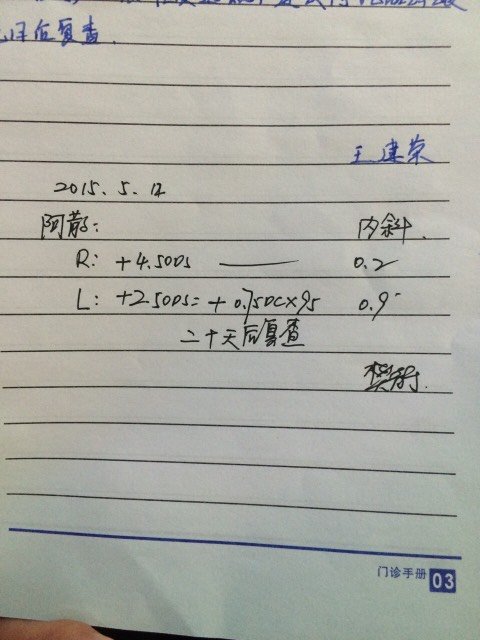 后复查.
王建荣
2015.5.12
阿散: 内斜.
R: +4.50DS —— 0.2
L: +2.50DS= +0.75DC×95 0.9
二十天后复查
门诊手册 03